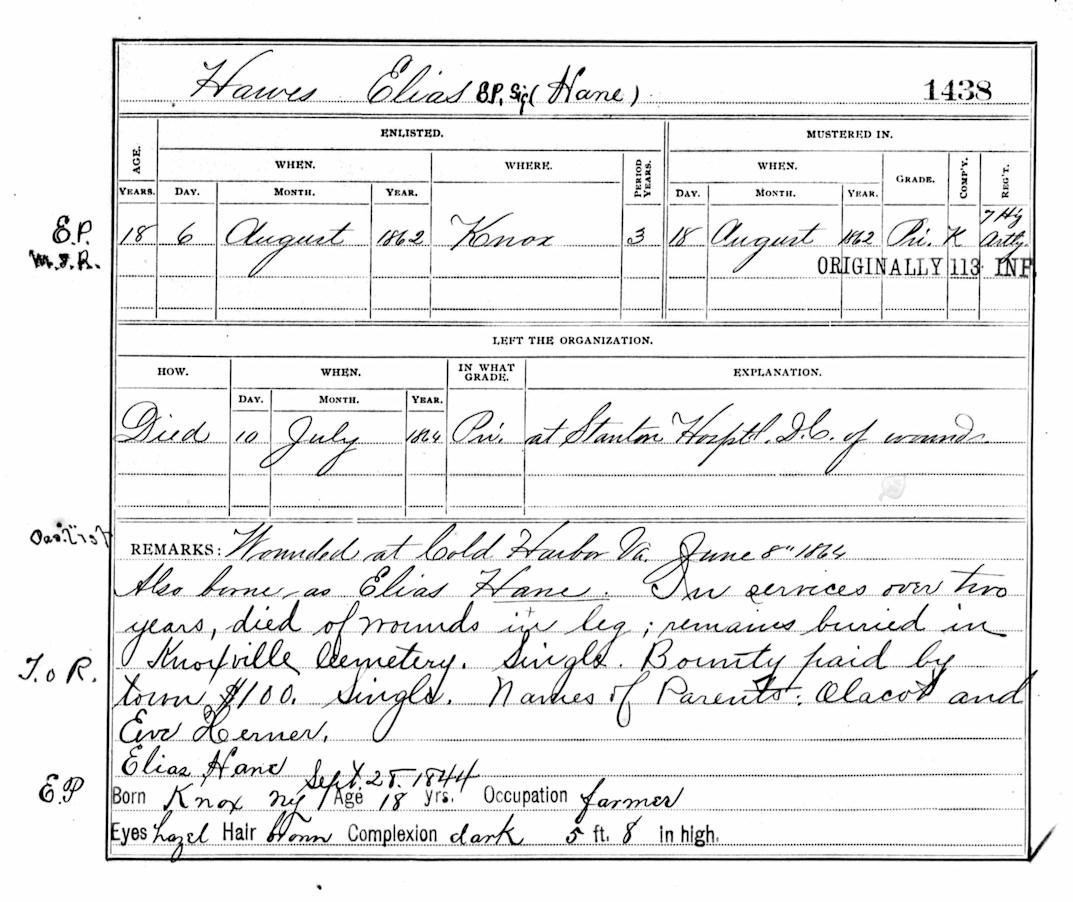 Hawes Elias E.P. Sig( Hane) 1438
ENLISTED. MUSTERED IN.
AGE. WHEN. WHERE. PERIOD YEARS. WHEN. GRADE. COMP'Y. REG'T.
YEARS. DAY. MONTH. YEAR. DAY. MONTH. YEAR.
7 Hy
E.P. 18 6 August 1862 Knox 3 18 August 1862 Pri. K Artly.
M.I.R. ORIGINALLY 113 INF.
LEFT THE ORGANIZATION.
HOW. WHEN. IN WHAT GRADE. EXPLANATION.
DAY. MONTH. YEAR.
Died 10 July 1864 Pri. at Stanton Hosptl. D.C. of wounds.
REMARKS: Wounded at Cold Harbor Va. June 8" 1864
Also borne as Elias Hane. In services over two
years, died of wounds in leg; remains buried in
T. o R. Knoxville Cemetery. Single. Bounty paid by
town $100. Single. Names of Parents: and
Eve
Elias Hane Sept. 25. 1844
E.P Born Knox Ny Age 18 yrs. Occupation farmer
Eyes hazel Hair brown Complexion dark 5 ft. 8 in high.